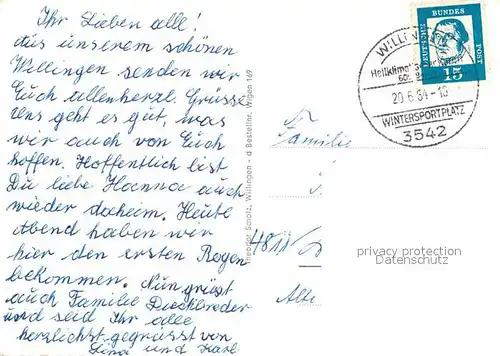 Ihr Lieben alle!
Aus unserem schönen
Willingen senden wir
Euch allen herzl. Grüsse
Uns geht es gut, was
wir auch von Euch
hoffen. Hoffentlich bist
Du liebe Hanna auch
wieder daheim. Heute
Abend haben wir
hier den ersten Regen
bekommen. Nun grüsst
auch Familie Dieckbreder
und seid Ihr alle
herzlichst gegrüsst von
Lina und Karl
Theodor Scholz, Willingen - d Bestellnr. Wigen 169
Familie
4811
Alte
DEUTSCHE BUNDES POST
15
WILLIN
Heilklima
20.6.64-10
WINTERSPORTPLATZ
3542
privacy protection
Datenschutz